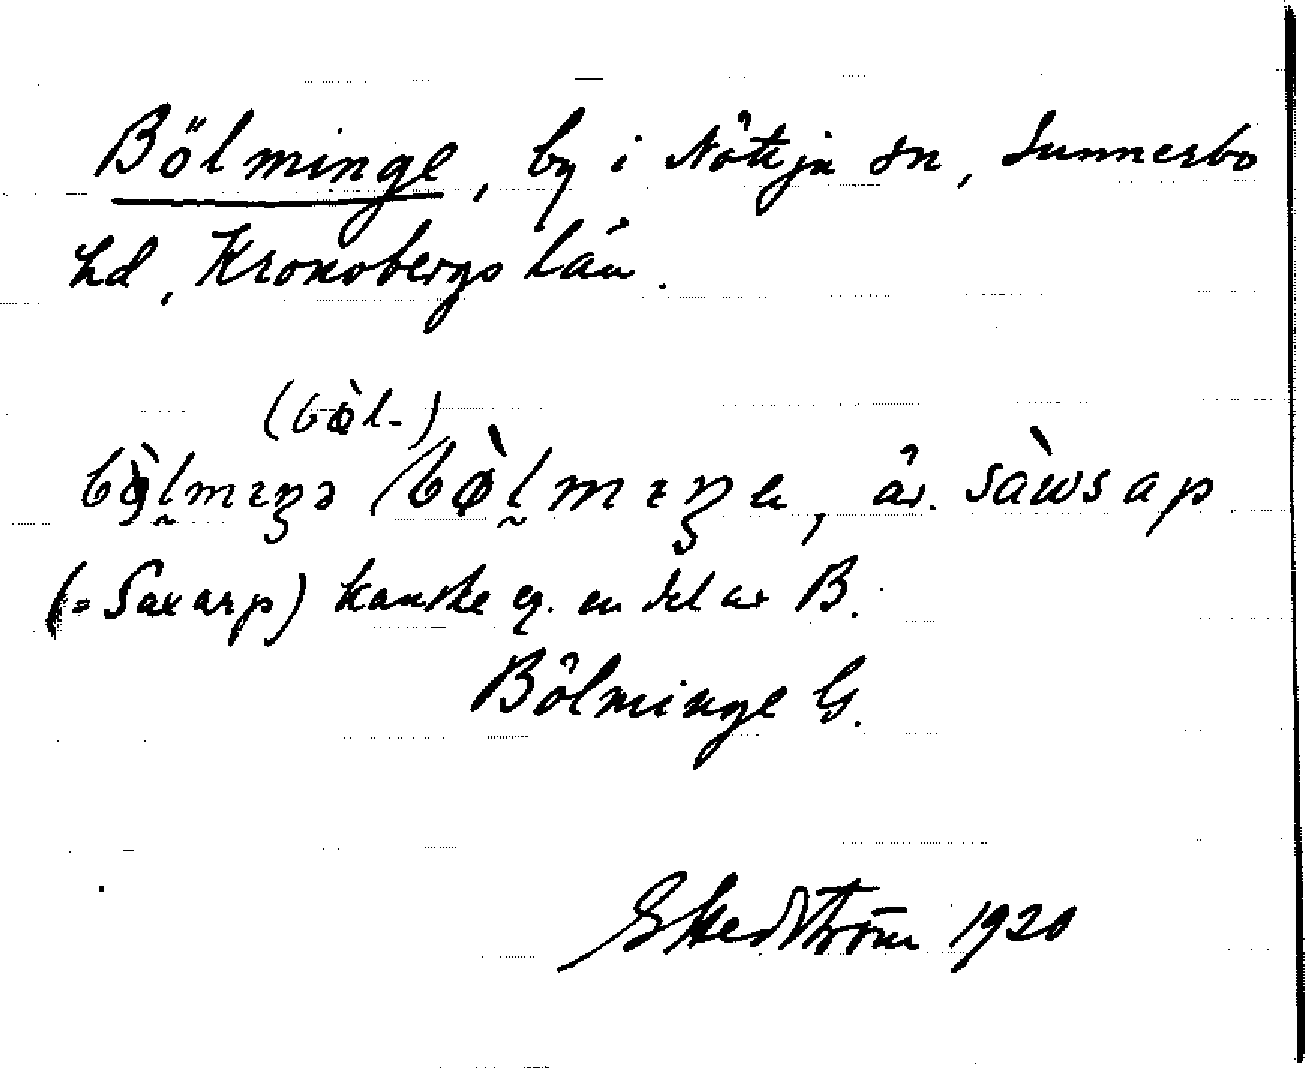 Bölminge, by i Nöttja sn, Sunnerbo
hd, Kronobergs län.
(bø̀l-)
bø̀lmıŋə bø̀lmıŋa, äv. sàwsap
(= Saxarp) kanske eg. en del av B.
Bölminge G.
G Hedström 1920